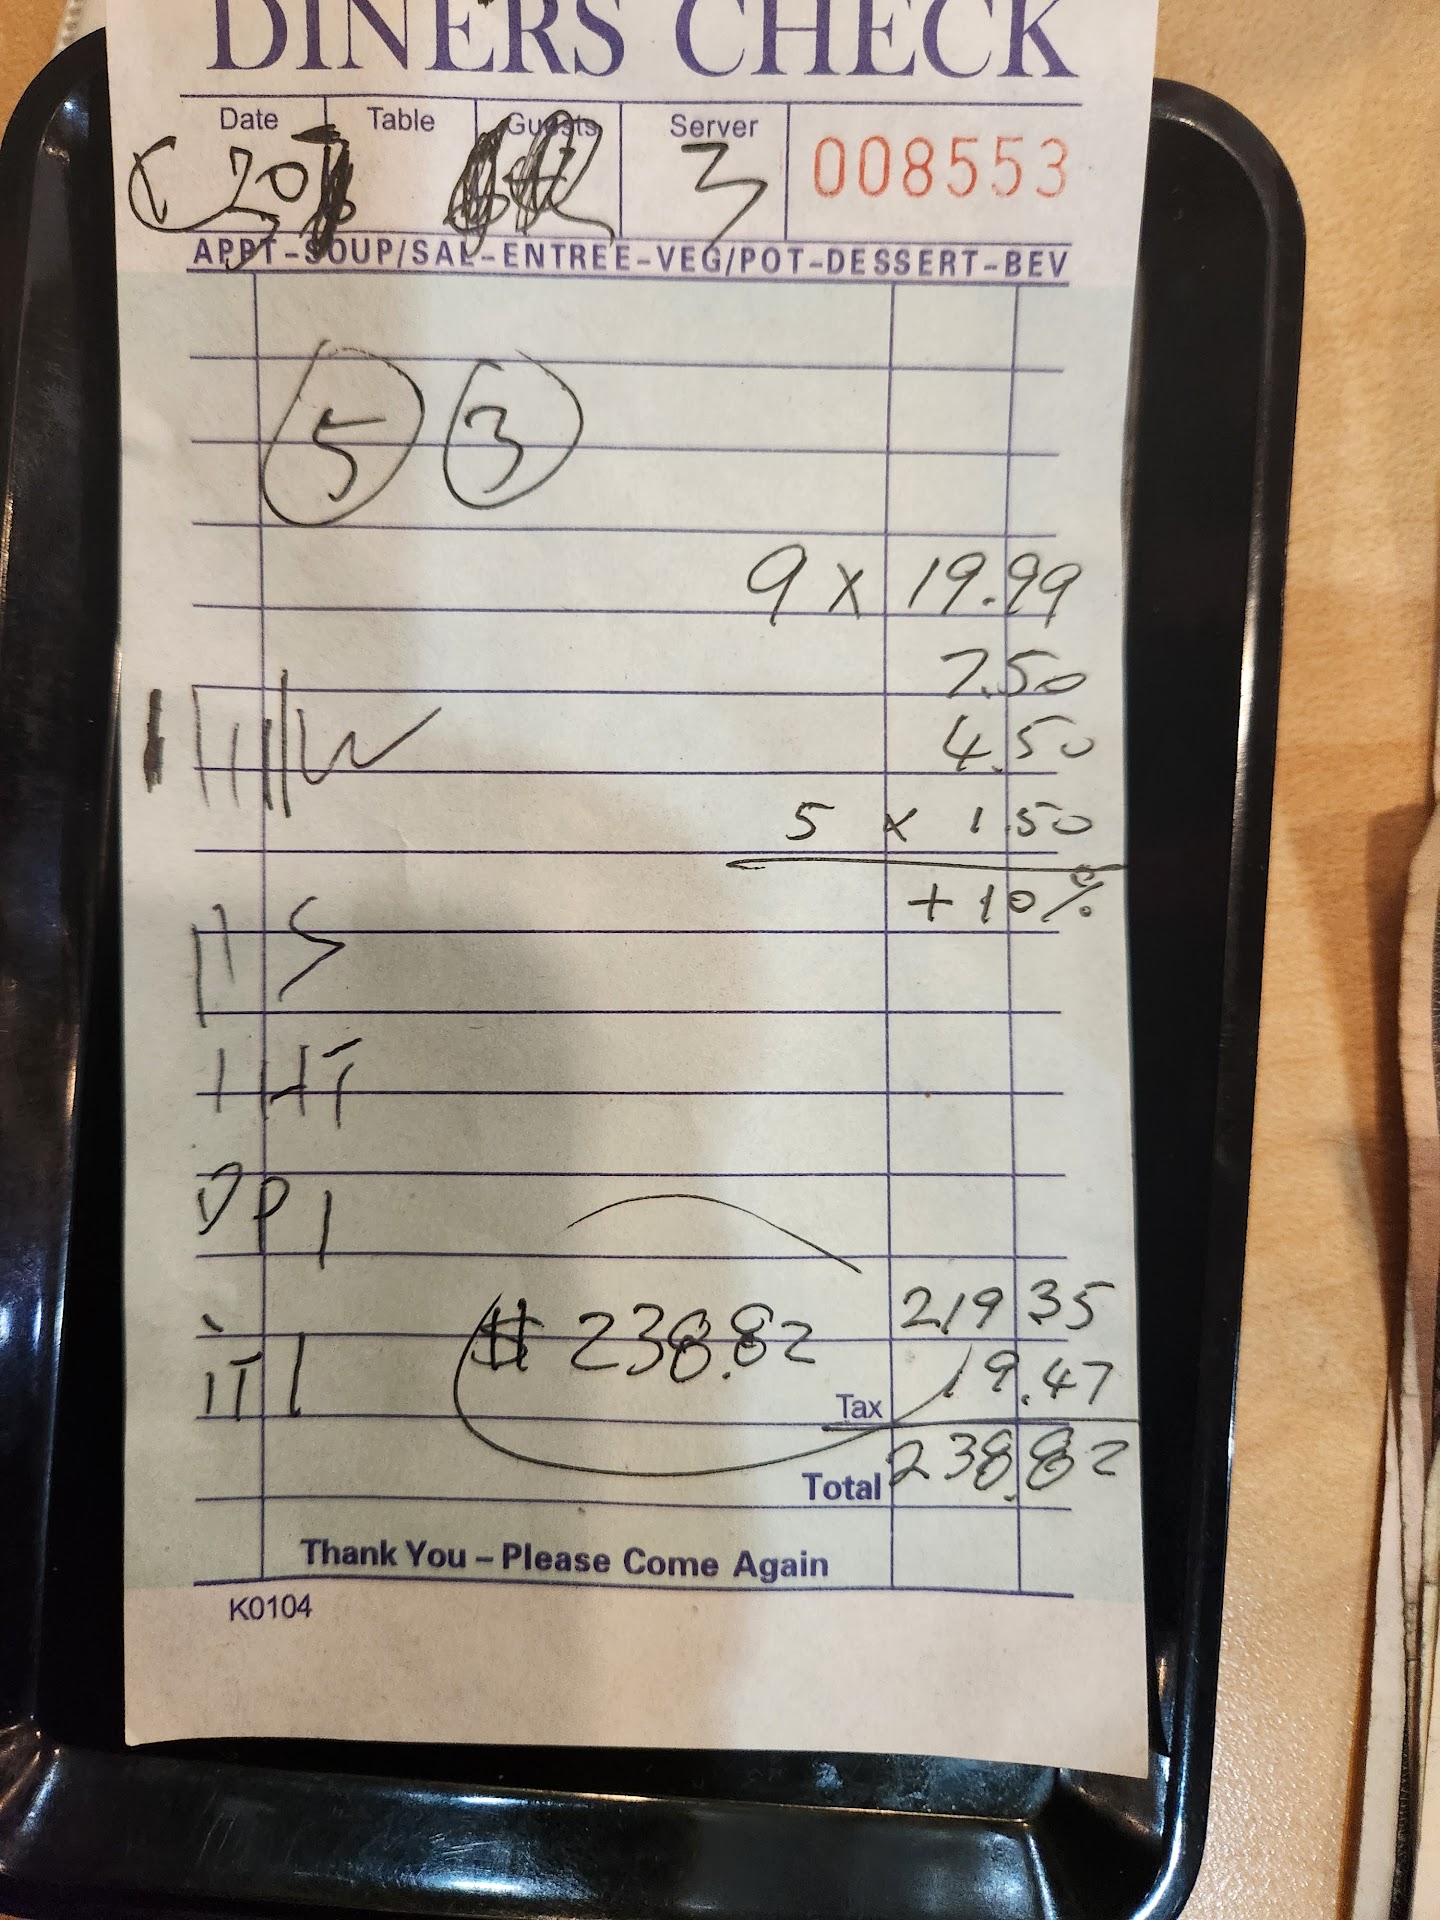 DINERS CHECK
Date Table Guests Server 008553
3
APPT-SOUP/SAL-ENTREE-VEG/POT-DESSERT-BEV
5 3
9 x 19.99
7.50
W 4.50
5 x 1.50
+10%
S
HT
DP 1
219 35
$ 238.82
IT 1 Tax 19.47
Total 238.82
Thank You – Please Come Again
K0104